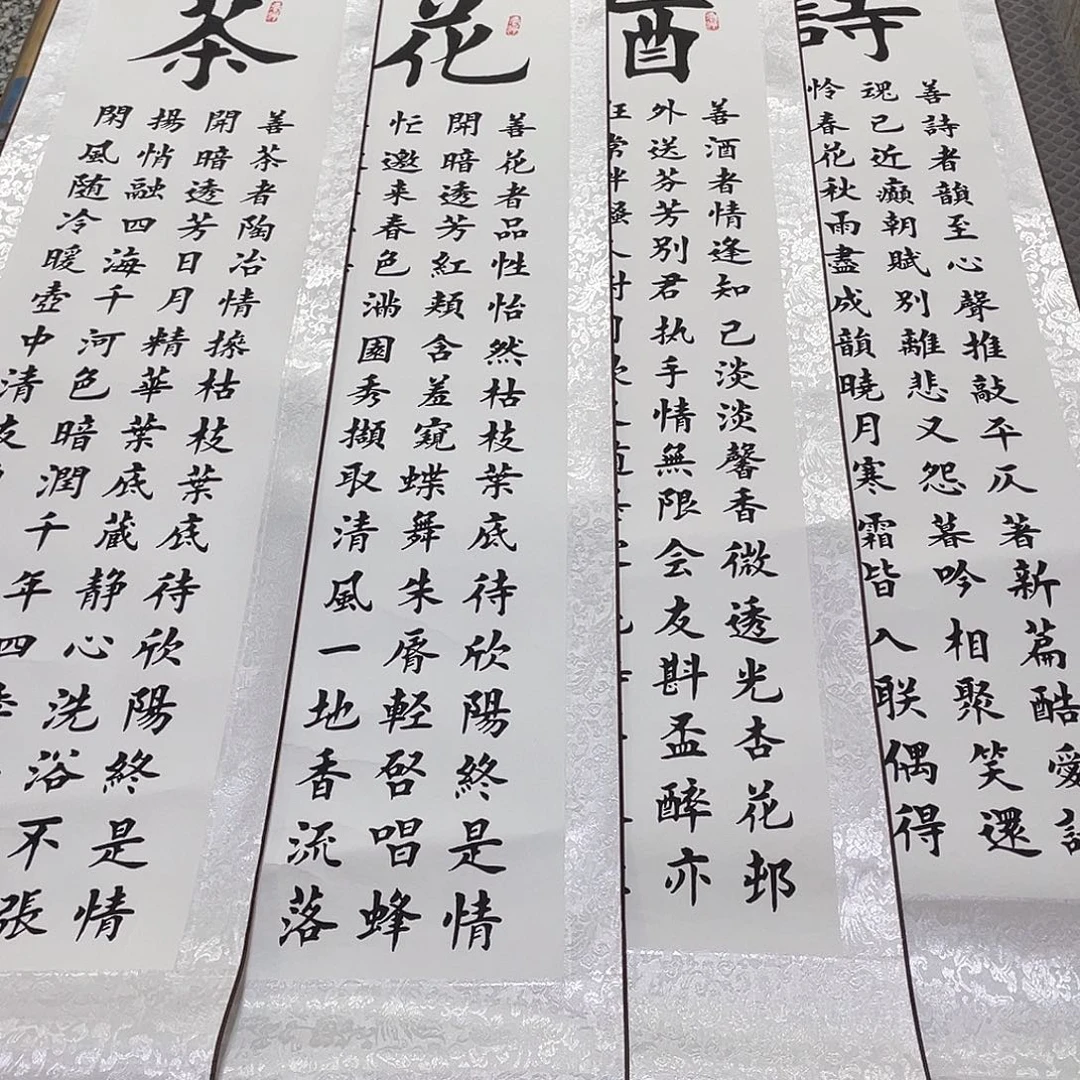 詩
善詩者韻至心聲推敲平仄著新篇酷愛詩
魂己近癲朝賦別離悲又怨暮吟相聚笑還
怜春花秋雨盡成韻曉月寒霜皆入联偶得
酒
善酒者情逢知己淡淡馨香微透光杏花邨
外送芬芳別君执手情無限会友斟盃醉亦
狂常伴
花
善花者品性怡然枯枝葉底待欣陽終是情
開暗透芳紅頰含羞窺蝶舞朱脣軽啓唱蜂
忙邀来春色滿園秀擷取清風一地香流落
茶
善茶者陶冶情操枯枝葉底待欣陽終是情
開暗透芳日月精華葉底蔵静心洗浴不張
揚悄融四海千河色暗潤千年四
閑風随冷暖壺中清